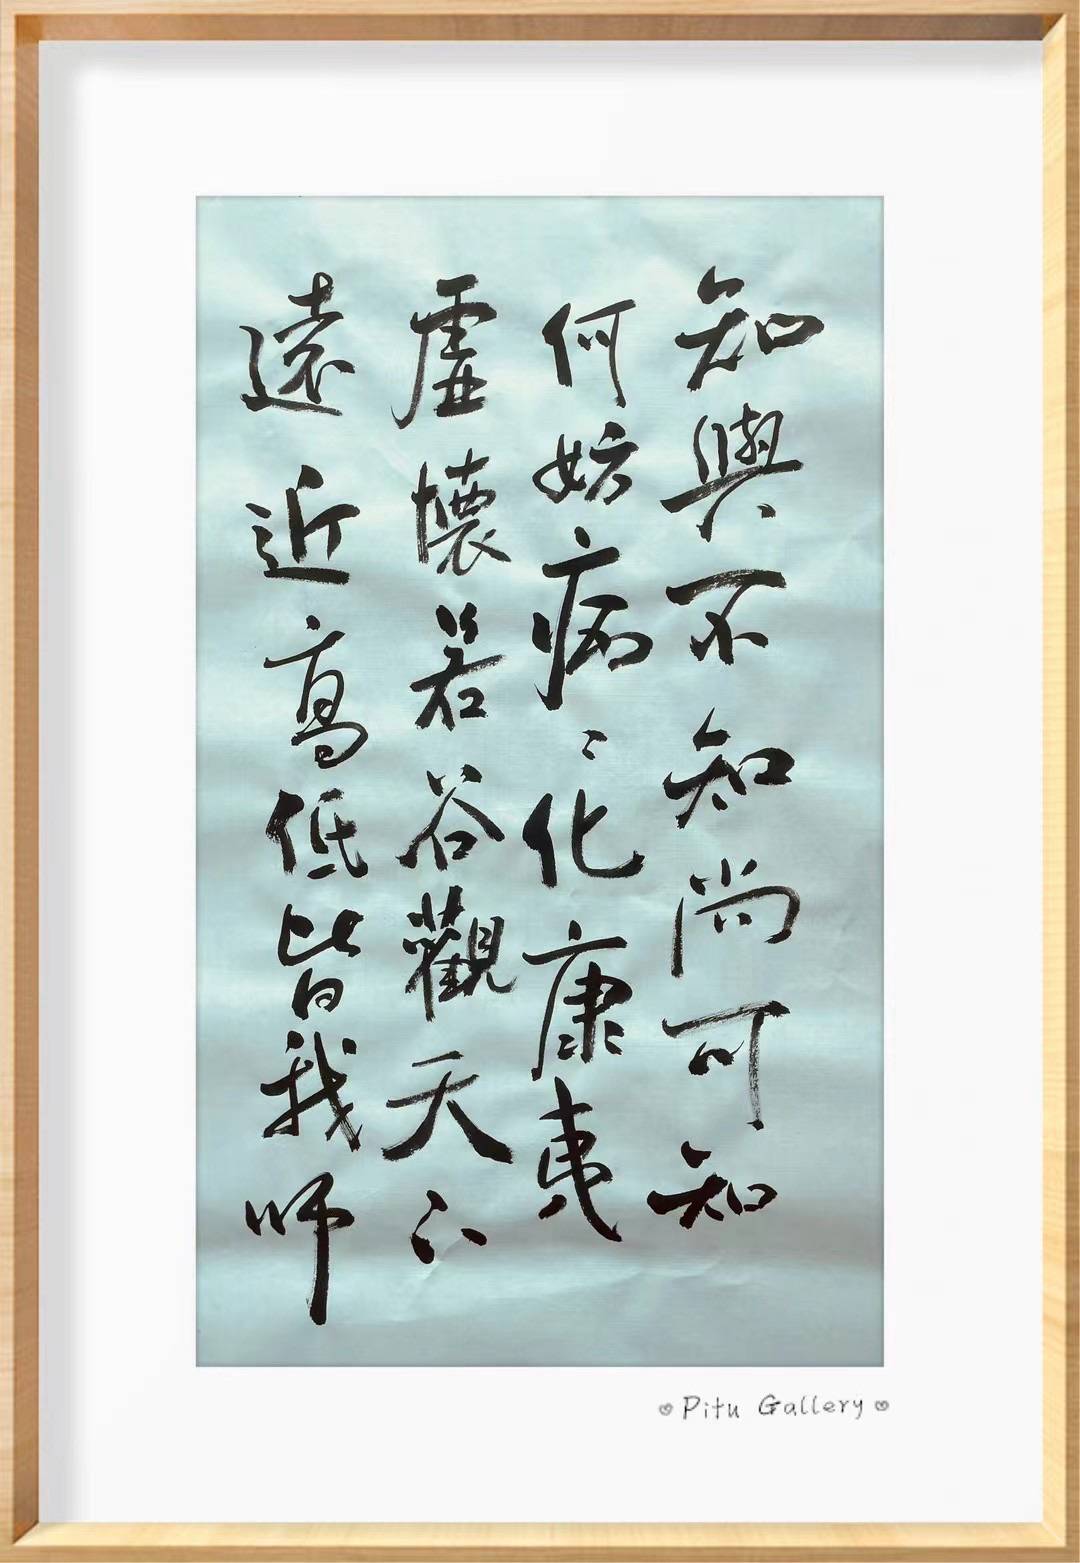 知與不知尚可知
何妨病〻化康夷
虛懷若谷觀天下
遠近高低皆我師
Pitu Gallery